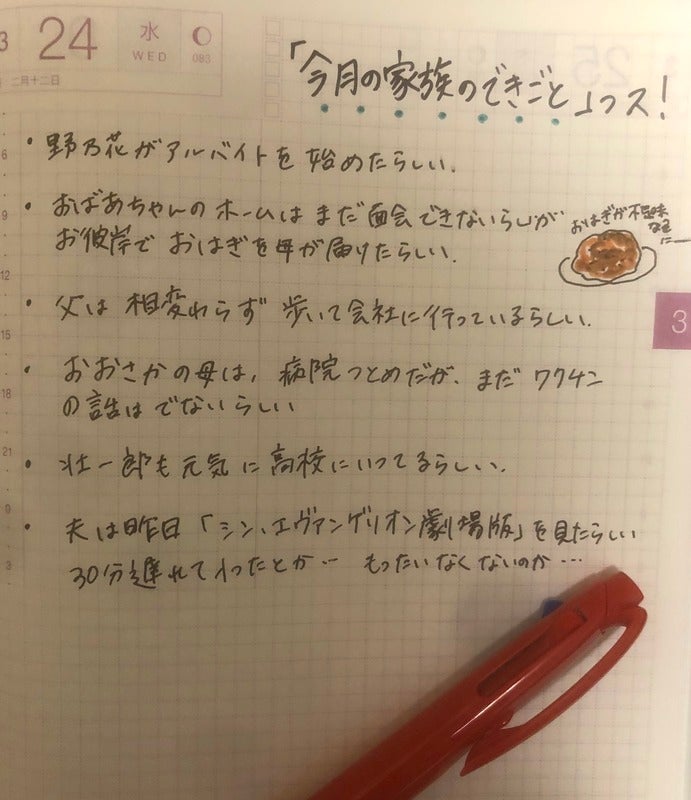 3
24
水
WED
083
二月十二日
「今月の家族のできごと」っス!
6
・野乃花がアルバイトを始めたらしい.
9
・おばあちゃんのホームはまだ面会できないらしいが
お彼岸でおはぎを母が届けたらしい.
おはぎが不気味
12
・父は相変わらず歩いて会社に行っているらしい.
3
15
・おおさかの母は,病院つとめだが、まだワクチン
の話はでないらしい
18
21
・壮一郎も元気に高校にいってるらしい.
・夫は昨日「シン、エヴァンゲリオン劇場版」を見たらしい
30分遅れて入ったとか… もったいなくないのか…
3